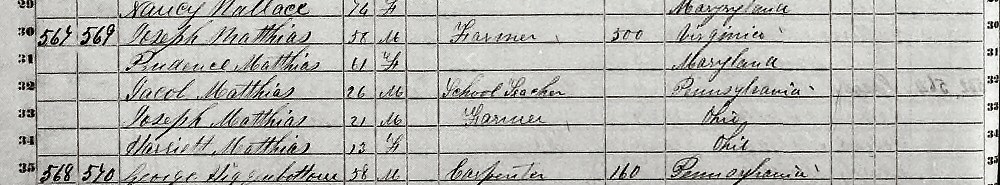 29 Nancy Wallace 76 F Maryland
30 567 569 Joseph Matthias 58 M Farmer 500 Virginia 30
31 Prudence Matthias 61 F Maryland 31
32 Jacob Matthias 26 M School Teacher Pennsylvania 32
33 Joseph Matthias 21 M Farmer Ohio 33
34 Harriett Matthias 13 F Ohio 34
35 568 570 George Higginbottom 58 M Carpenter 160 Pennsylvania 35